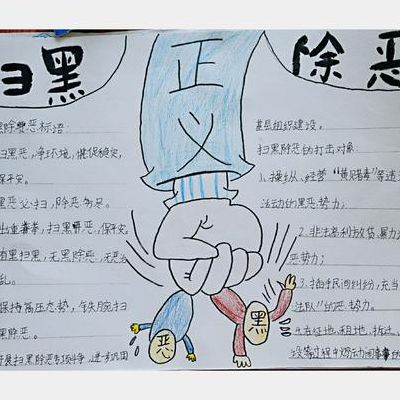 扫黑
正义
除恶
黑除恶标语
扫黑恶,净环境,催促稳定,
保平安。
黑恶必扫,除恶务尽。
出重拳,扫黑恶,保平安
有黑扫黑,无黑除恶,无恶
乱。
保持高压态势,铁腕扫
黑除恶。
开展扫黑除恶专项
基层组织建设。
扫黑除恶的打击对象
1.操纵、经营“黄赌毒”等违
活动的黑恶势力;
2.非法高利放贷,暴力
恶势力;
3.插手民间纠纷,充当
法队”的恶势力。
4.在征地、租地、拆迁、
设等过程中煽动闹事
恶
黑